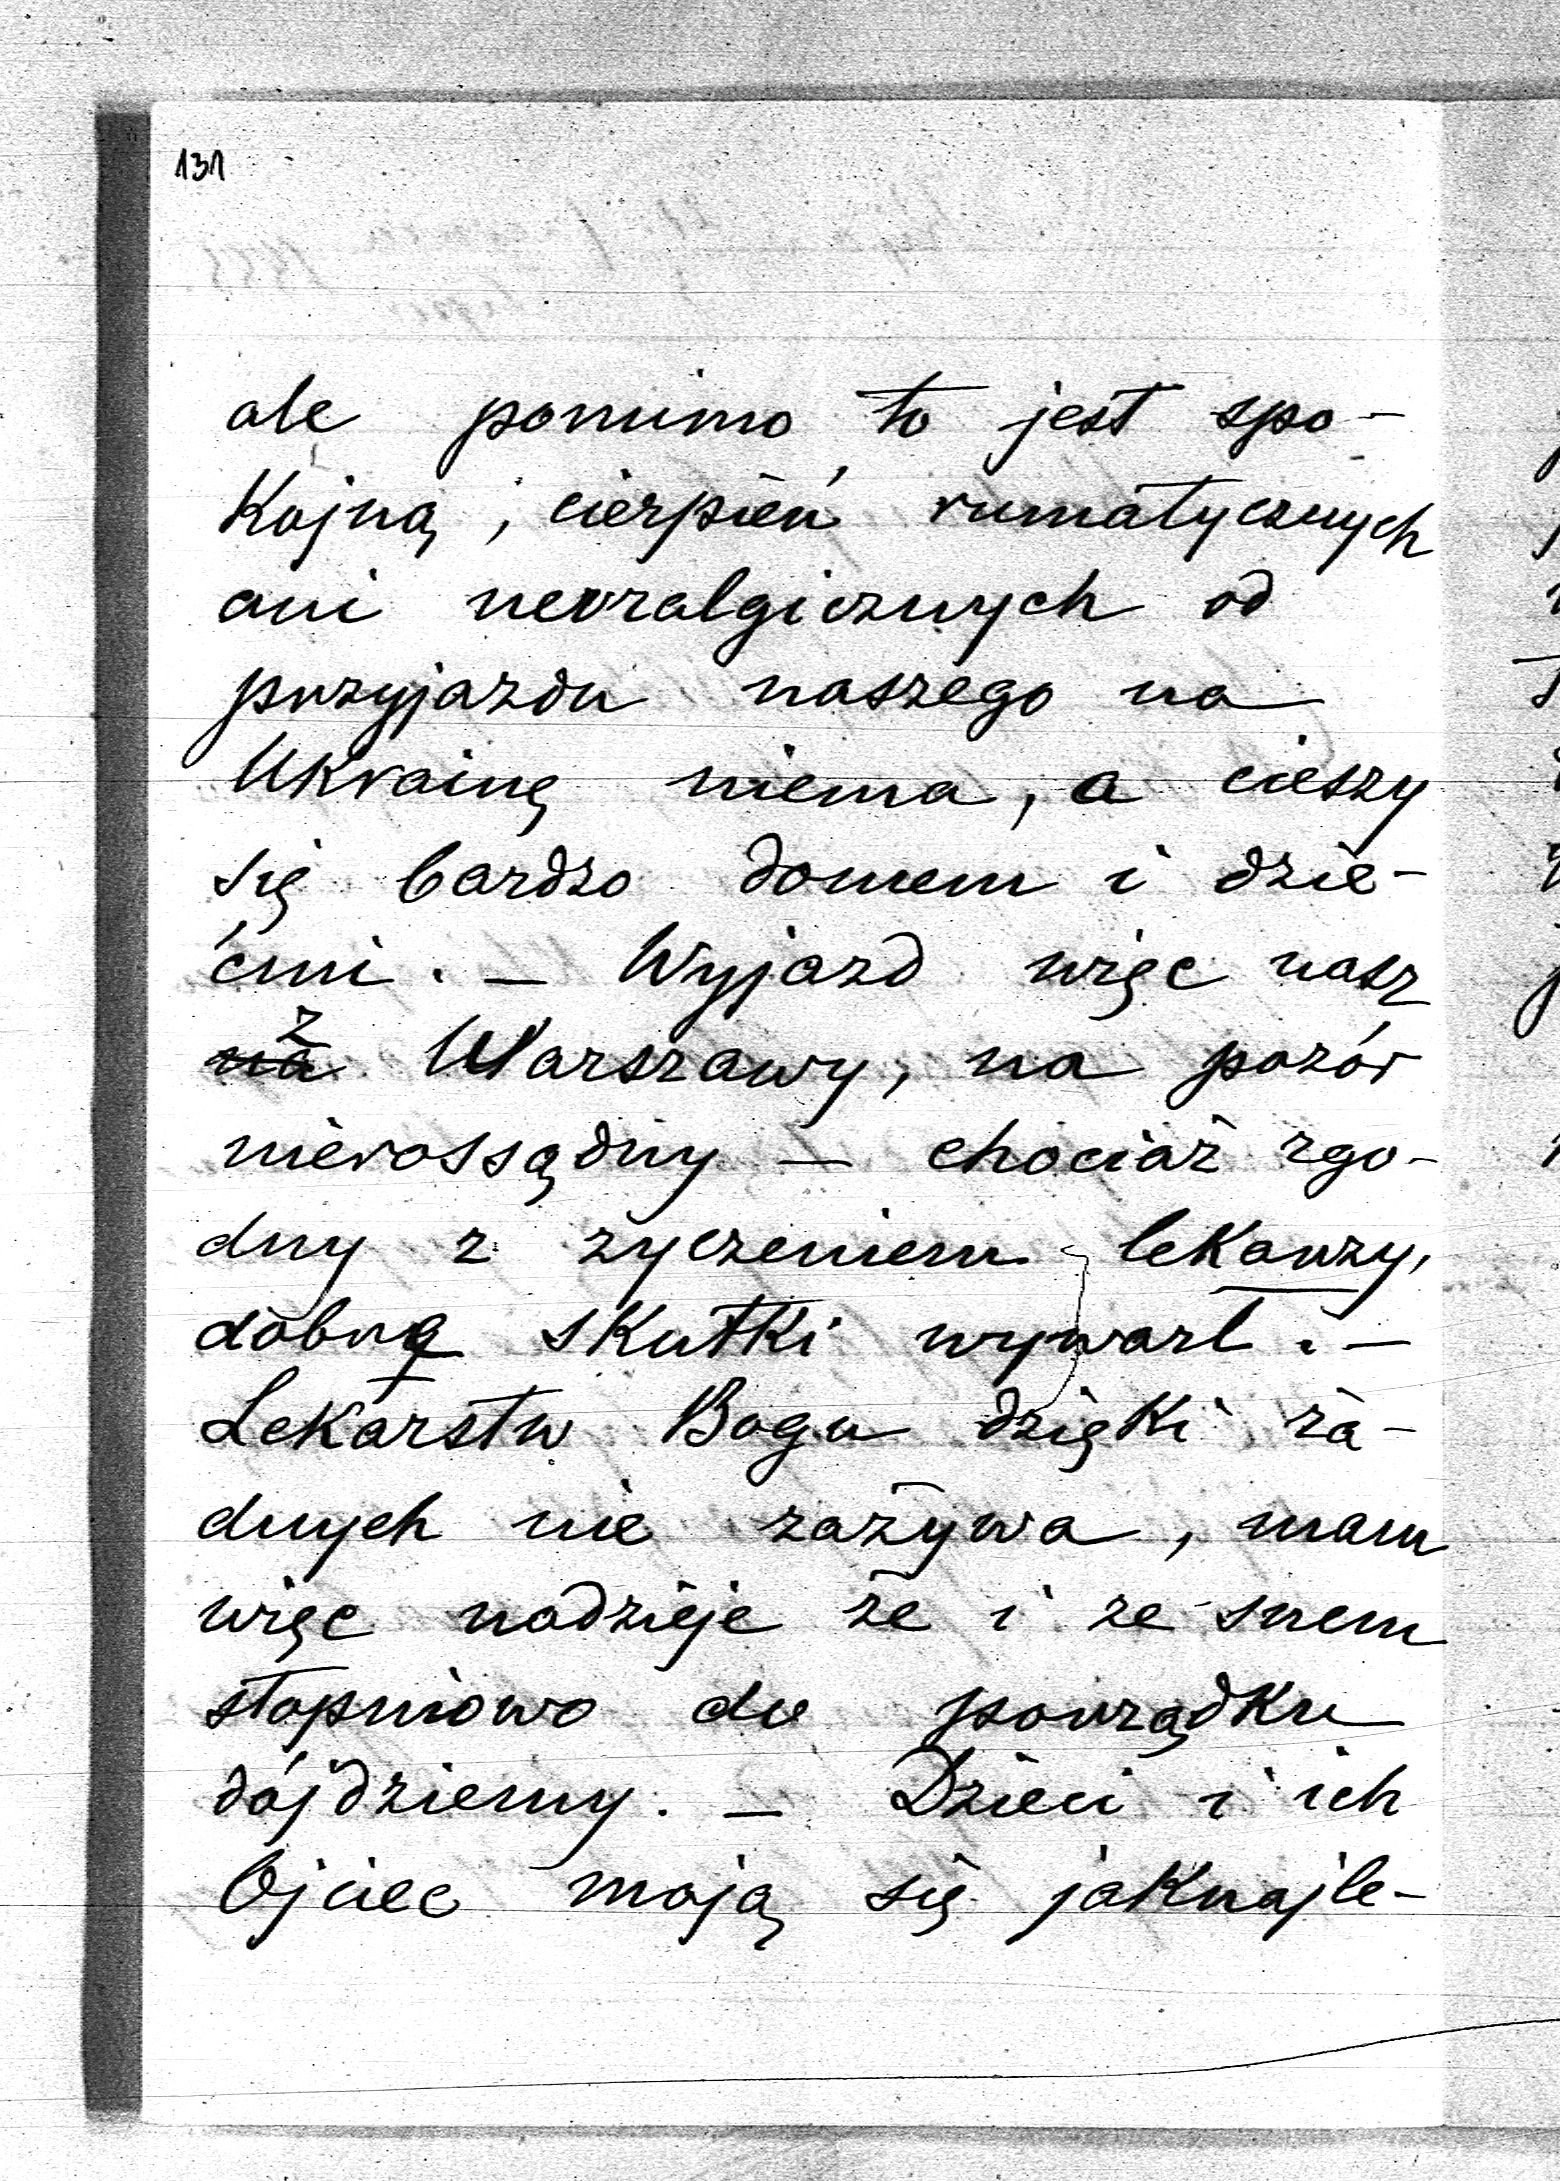 131
ale pomimo to jest spo-
kojną, cierpień rumatycznych
ani nevralgicznych od
przyjazdu naszego na
Ukrainę niema, a cieszy
się bardzo domem i dzie-
ćmi. – Wyjazd więc nasz
z
na Warszawy, na pozór
nierossądny – chociaż zgo-
dny z życzeniem lekarzy,
dobre skutki wywarł. –
Lekarstw Bogu dzięki ża-
dnych nie zażywa, mam
więc nadzieje że i ze snem
stopniowo do porządku
dójdziemy. – Dzieci i ich
Ojciec mają się jaknajle-